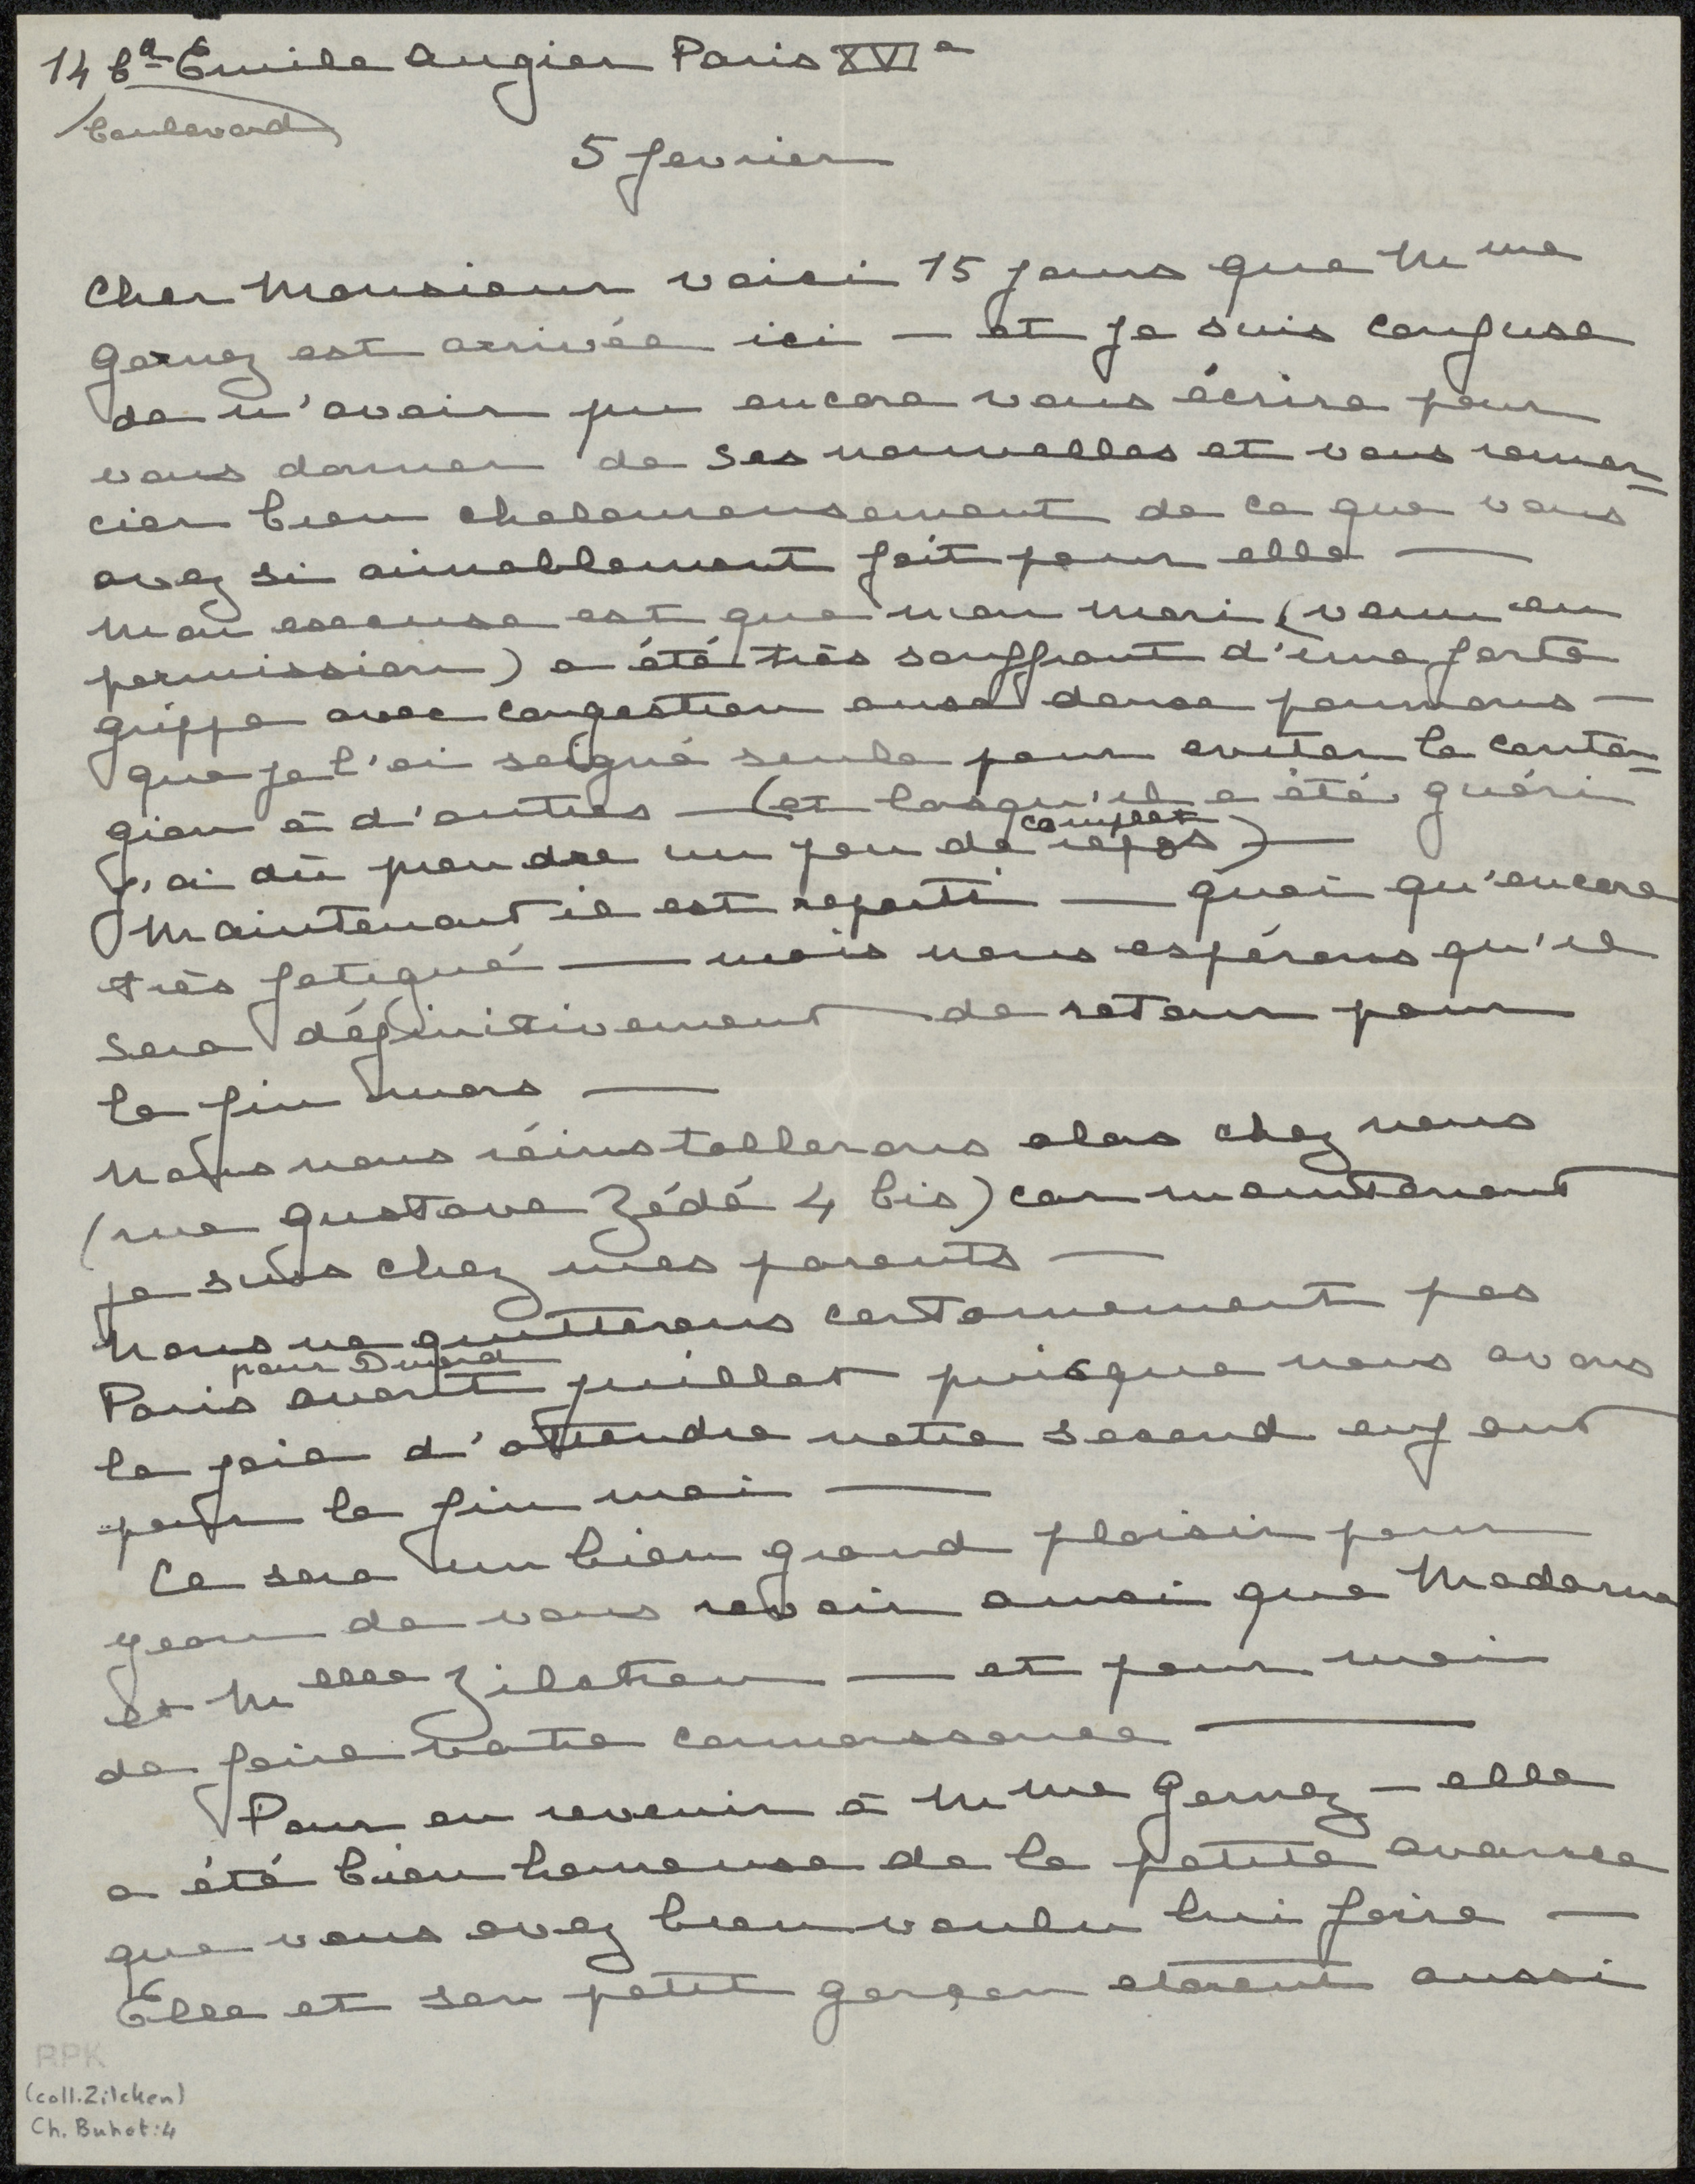 14 Bd Emile Augier Paris XVIe
boulevard
5 fevrier
Cher Monsieur voici 15 jours que Mme
Gernez est arrivée ici — et je suis confuse
de n'avoir pu encore vous écrire pour
vous donner de ses nouvelles et vous remer=
cier bien chaleureusement de ce que vous
avez si aimablement fait pour elle —
Mon excuse est que mon mari (venu en
permission) a été très souffrant d'une forte
grippe avec congestion aux deux poumons —
que je l'ai soigné seule pour eviter la conta=
gion à d'autres — (et lorsqu'il a été guéri
complet
j'ai dû prendre un peu de repos) —
Maintenant il est reparti — quoi qu'encore
très fatigué — mais nous espérons qu'il
sera définitivement de retour pour
la fin mars —
Nous nous réinstallerons alors chez nous
(rue Gustave Zédé 4 bis) car maintenant
je suis chez mes parents —
Nous ne quitterons certainement pas
pour Dinard
Paris avant juillet puisque nous avons
la joie d'attendre notre second enfant
pour la fin mai —
Ce sera un bien grand plaisir pour
Jean de vous revoir ainsi que Madame
et Melle Zilcken — et pour moi
de faire votre connaissance —
Pour en revenir à Mme Gernez — elle
a été bien heureuse de la petite avance
que vous avez bien voulu lui faire —
Elle et son petit garçon étaient aussi
RPK
(coll. Zilcken)
Ch. Buhot: 4